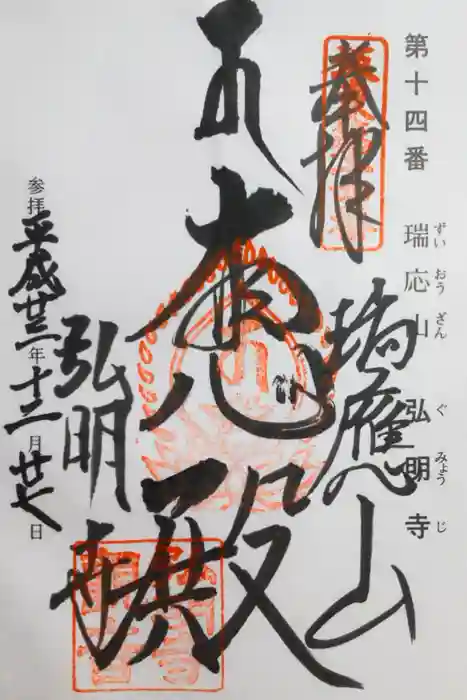 第十四番 瑞応山 弘明寺
ずい おう ざん ぐ みょう じ
奉拝
瑞應山
大悲殿
弘明寺
参拝 平成廿三年十二月廿七日